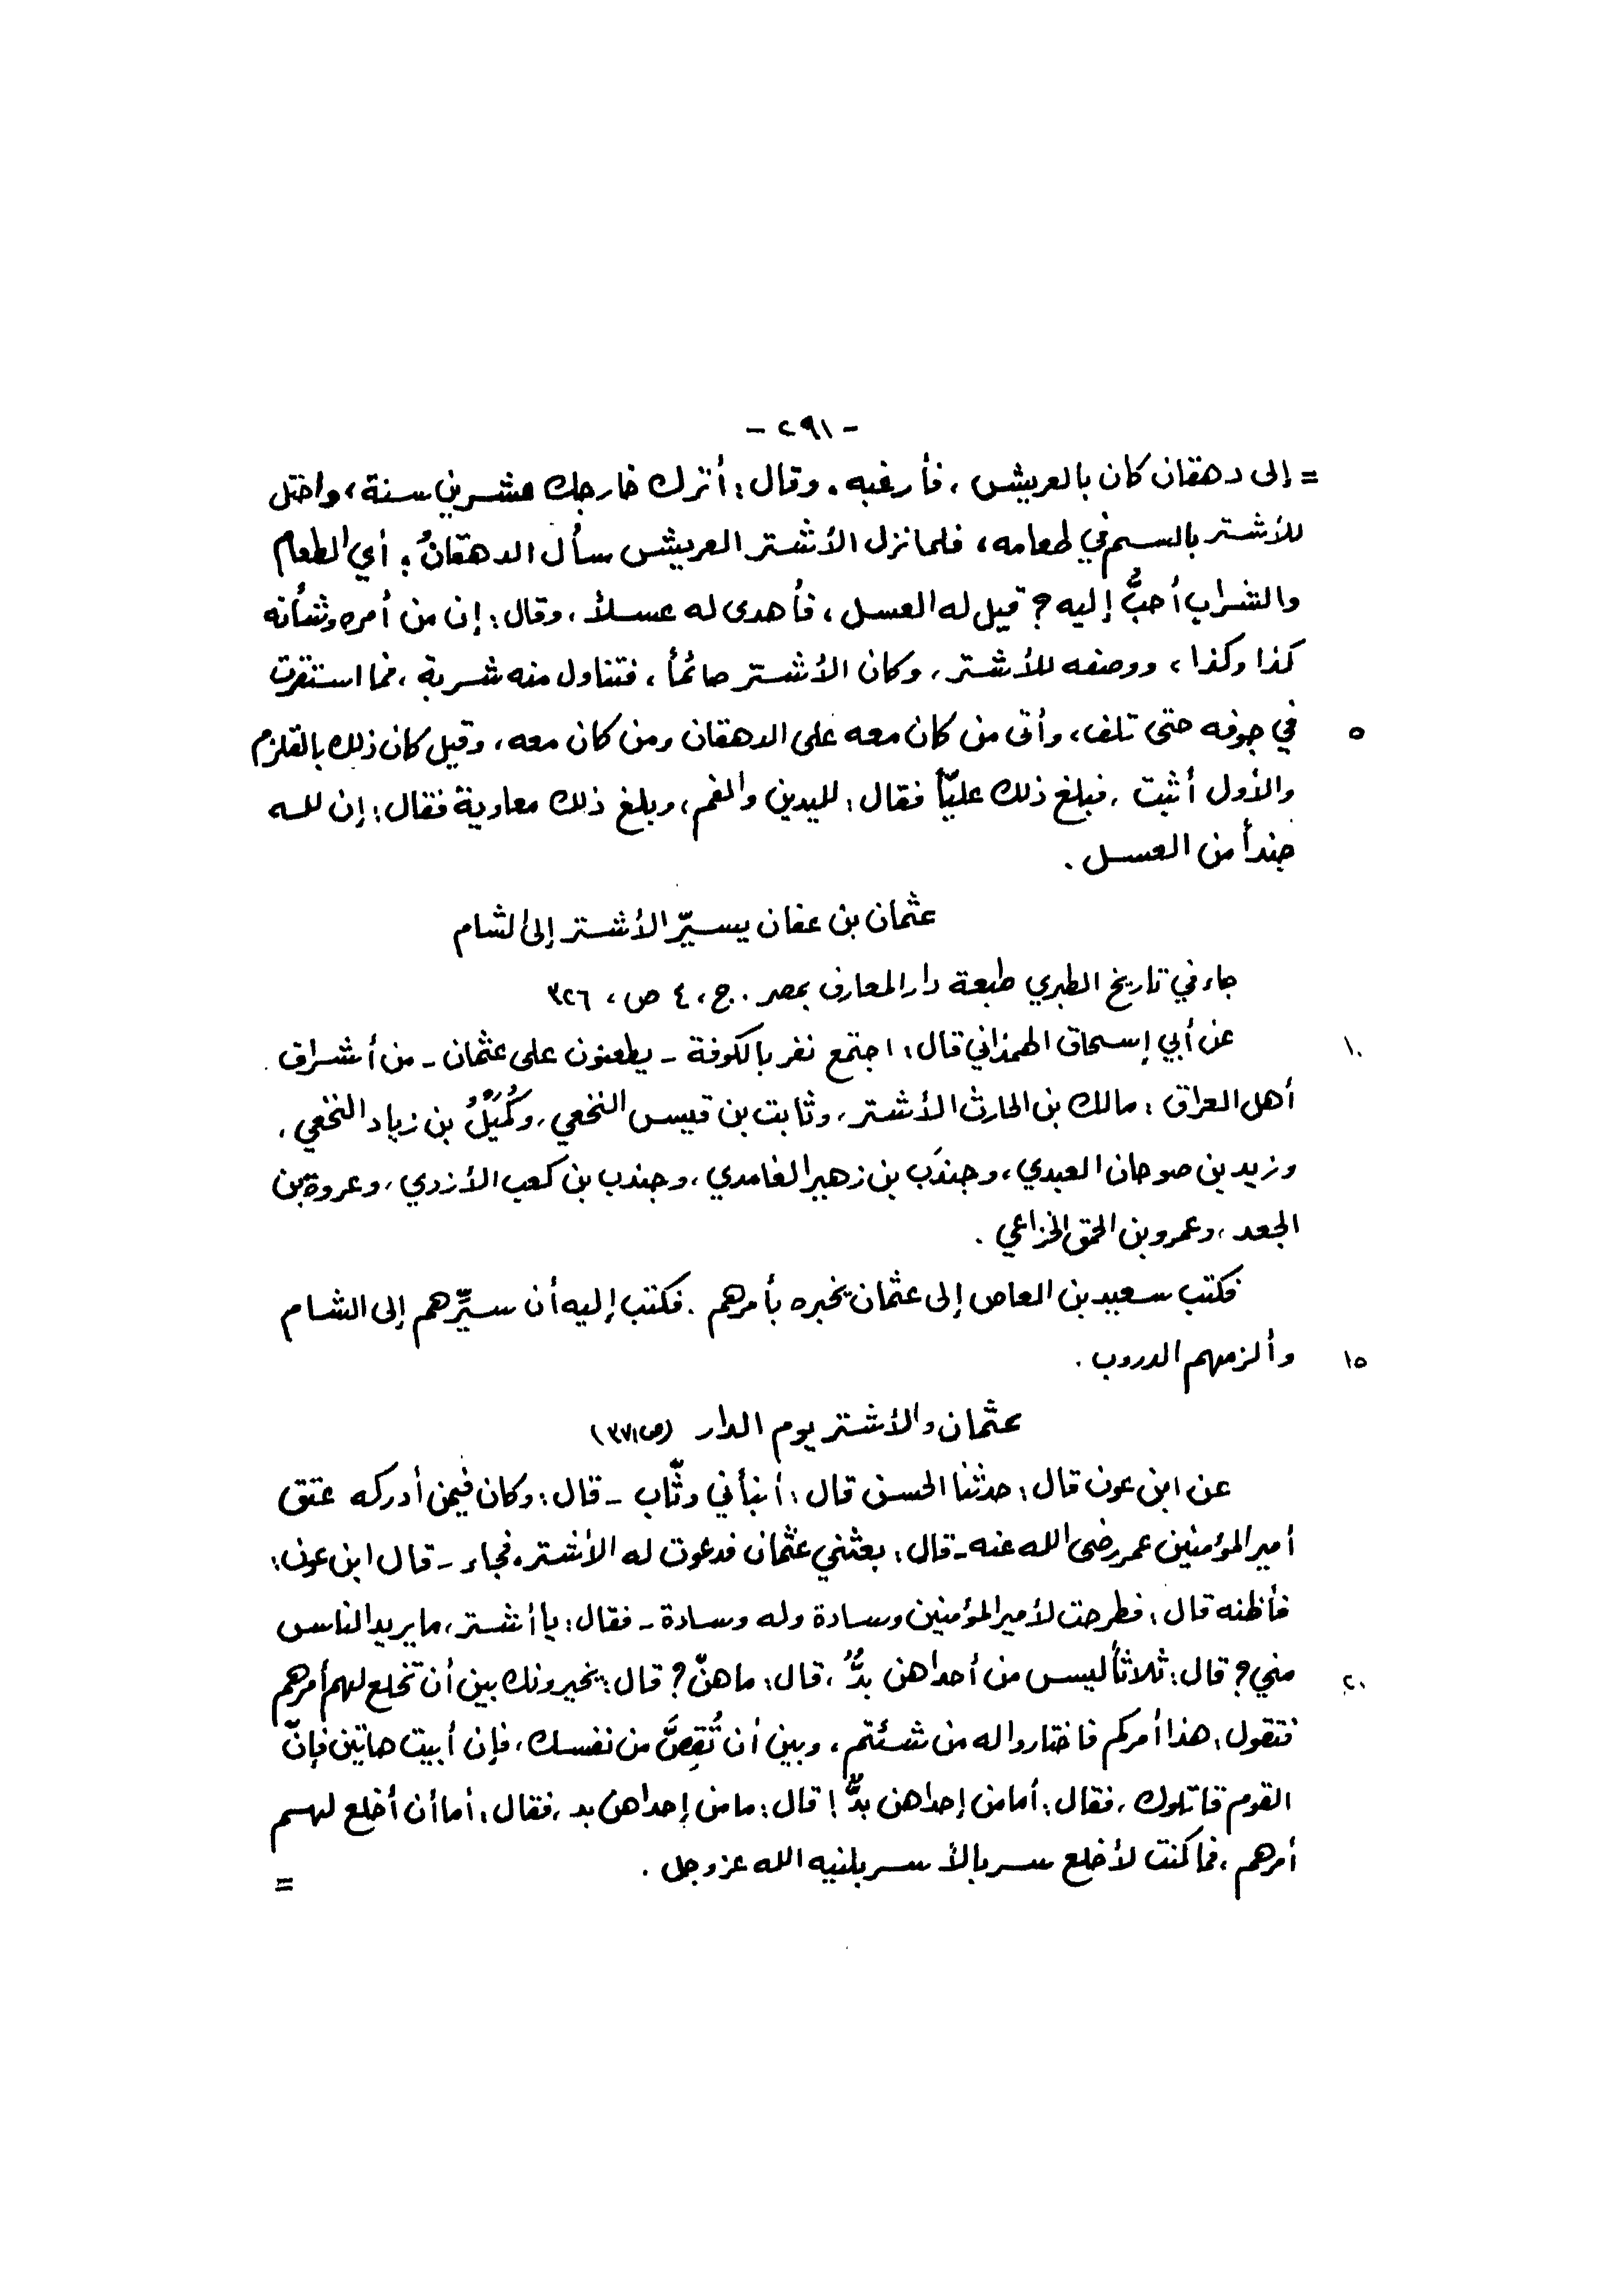 - ٢٩١ -
= إلى دهقان كان بالعريش، فأرغبه. وقال: أترك خارجك عشرين سنة، واختل
للأشتر بالسم في طعامه، فلما نزل الأشتر العريش سأل الدهقانُ: أي الطعام
والشراب أحبُّ إليه؟ قيل له العسل، فأهدى له عسلاً، وقال: إن من أمره وشأنه
كذا وكذا، ووصفه للأشتر، وكان الأشتر صائماً، فتناول منه شربة، فما استقرت
في جوفه حتى تلف، وأتى من كان معه على الدهقان ومن كان معه، وقيل كان ذلك بالقلزم
٥
والأول أثبت، فبلغ ذلك عليّاً فقال: لليدين والفم، وبلغ ذلك معاوية فقال: إن لله
جنداً من العسل.
عثمان بن عفان يسيّر الأشتر إلى الشام
جاء في تاريخ الطبري طبعة دار المعارف بمصر. ج، ٤ ص، ٣٢٦
عن أبي إسحاق الهمذاني قال: اجتمع نفر بالكوفة - يطعنون على عثمان - من أشراف
١٠
أهل العراق: مالك بن الحارث الأشتر، وثابت بن قيس النخعي، وكُمَيْلُ بن زياد النخعي،
وزيد بن صوحان العبدي، وجندَب بن زهير الغامدي، وجندب بن كعب الأزدي، وعروة بن
الجعد، وعمرو بن الحمق الخزاعي.
فكتب سعيد بن العاص إلى عثمان يخبره بأمرهم. فكتب إليه أن سيِّرهم إلى الشام
وألزمهم الدروب.
١٥
عثمان والأشتر يوم الدار (ص ٣٧١)
عن ابن عون قال: حدثنا الحسن قال: أنبأني وثّاب - قال: وكان فيمن أدركه عتق
أمير المؤمنين عمر رضى الله عنه - قال: بعثني عثمان فدعوت له الأشتر. فجاء - قال ابن عون:
فأظنه قال: فطرحت لأمير المؤمنين وسادة وله وسادة - فقال: يا أشتر، ما يريد الناس
مني؟ قال: ثلاثاً ليس من أحداهن بدٌّ، قال: ما هنّ؟ قال: يخيرونك بين أن تخلع لهم أمرهم
٢٠
فتقول: هذا أمركم فاختاروا له من شئتم، وبين أن تُقِصَّ من نفسك، فإن أبيت هاتين فإنّ
القوم قاتلوك، فقال: أما من إحداهن بدٌّ! قال: ما من إحداهن بد، فقال: أما أن أخلع لهم
أمرهم، فما كنت لأخلع سربالاً سربلنيه الله عز وجل.
=